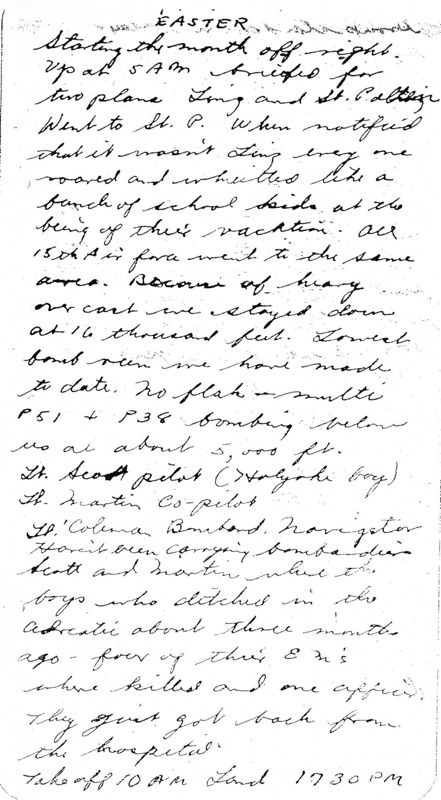 EASTER
Starting the month off right.
Up at 5 AM briefed for
two plans Linz and St. Polten
Went to St. P. When notified
that it wasn't Linz every one
roared and whistled like a
bunch of school kids at the
being of their vacation. All
15th Air force went to the same
area. Because of heavy
overcast we stayed down
at 16 thousand feet. Lowest
bomb run we have made
to date. No flak - multi
P51 + P38 bombing below
us at about 5,000 ft.
Lt. Scott pilot (Holyoke boy)
Lt. Martin Co-pilot
Lt. Coleman Bombard. Navigator
Haven't been carrying bombardiers
Scott and Martin where the
boys who ditched in the
Adreatic about three months
ago - four of their EM's
where killed and one officer.
They just got back from
the hospital
Take off 10 AM Land 1730 PM